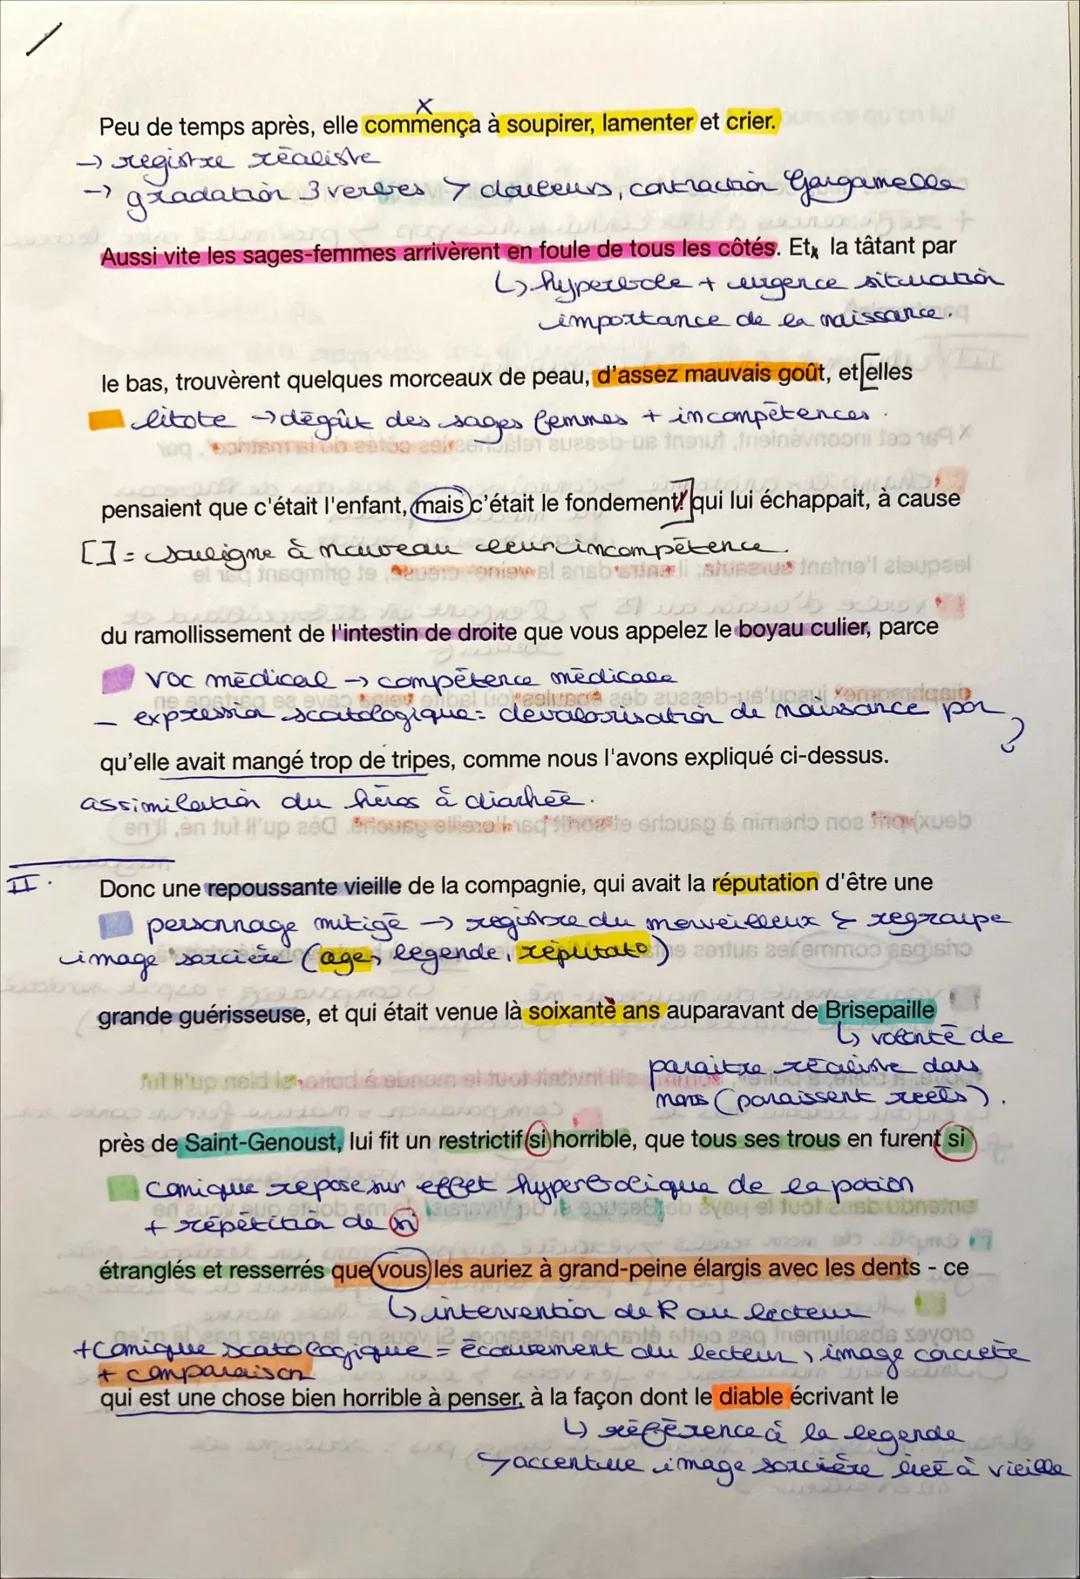 Peu de temps après, elle commença à soupirer, lamenter et crier.
-> registre réaliste
-> gradation 3 verbes > douleurs, contraction Gargamelle
Aussi vite les sages-femmes arrivèrent en foule de tous les côtés. Et, la tâtant par
↳ hyperbole + urgence situation
importance de la naissance.
le bas, trouvèrent quelques morceaux de peau, d'assez mauvais goût, et [elles
litote -> dégoût des sages femmes + incompétences.
pensaient que c'était l'enfant, mais c'était le fondement] qui lui échappait, à cause
[] = souligne à nouveau leur incompétence.
du ramollissement de l'intestin de droite que vous appelez le boyau culier, parce
voc médical -> compétence médicale
- expression scatologique = dévalorisation de naissance par
?
qu'elle avait mangé trop de tripes, comme nous l'avons expliqué ci-dessus.
assimilation du héros à diarhée.
II.
Donc une repoussante vieille de la compagnie, qui avait la réputation d'être une
personnage mitigé -> registre du merveilleux & regroupe
image sorcière (age, légende, réputato)
grande guérisseuse, et qui était venue là soixante ans auparavant de Brisepaille
↳ volonté de
paraitre réaliste dans
noms (paraissent réels).
près de Saint-Genoust, lui fit un restrictif si horrible, que tous ses trous en furent si
comique repose sur effet hyperbolique de la potion
+ répétition de si
étranglés et resserrés que vous les auriez à grand-peine élargis avec les dents - ce
↳ intervention de R au lecteur
+ comique scatologique = écœurement du lecteur, image concrète
+ comparaison
qui est une chose bien horrible à penser, à la façon dont le diable écrivant le
↳ référence à la légende
↳ accentue image sorcière liée à vieille